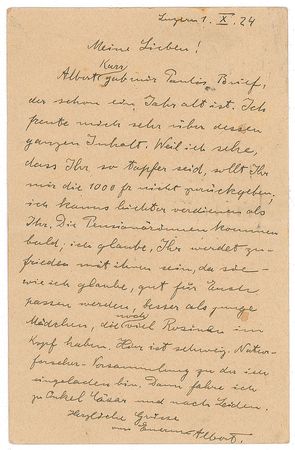 Luzern 1. X. 24
Meine Lieben!
Karr
Albert gab mir Paulis Brief,
der schon ein Jahr alt ist. Ich
freute mich sehr über dessen
ganzen Inhalt. Weil ich sehe,
dass Ihr so tapfer seid, sollt Ihr
mir die 1000 fr nicht zurückgeben,
ich kanns leichter verdienen als
Ihr. Die Pensionärinnen kommen
bald, ich glaube, Ihr werdet zu-
frieden mit ihnen sein, da sie
wie ich glaube, gut für Euch
passen werden, besser als junge
Mädchen, die noch viel Rosinen im
Kopf haben. Hier ist schweiz. Natur-
forscher-Versammlung zu der ich
eingeladen bin. Dann fahre ich
zu Onkel Cäsar und nach Leiden.
Herzliche Grüsse
von Eurem Albert.